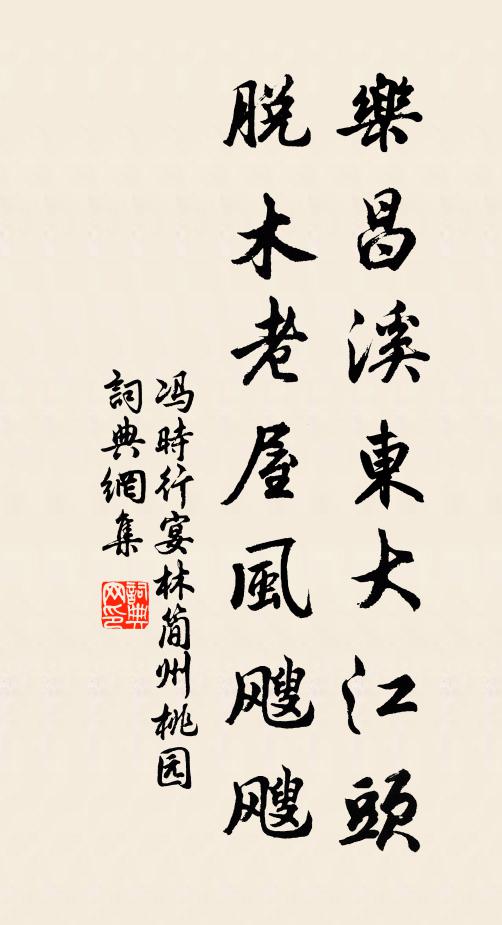 樂昌溪東大江頭
脫木老屋風颼颼
冯時行宴林简州桃园
詞典網集
詞典网印